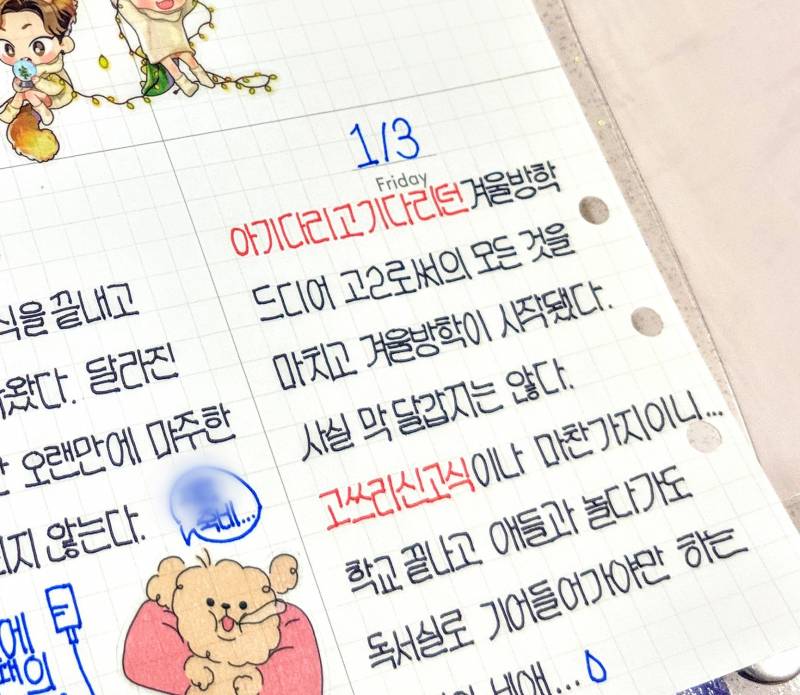 식을 끝내고
왔다. 달라진
오랜만에 마주한
되지 않는다.
에
1/3
Friday
아기다리고기다리던 겨울방학
드디어 고2로써의 모든 것을
마치고 겨울방학이 시작됐다.
사실 막 달갑지는 않다.
고쓰리신고식이나 마찬가지이니...
학교 끝나고 애들과 놀다가도
독서실로 기어들어가야만 하는